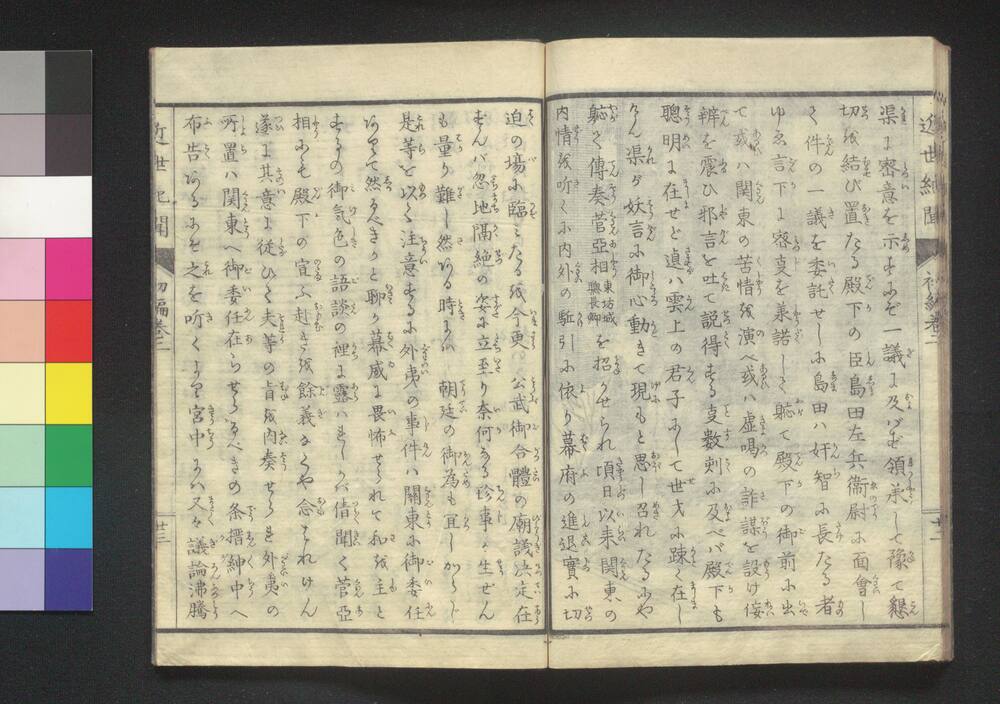 近世紀聞 初編巻二 廿二
渠に密意を示すにぞ一議に及ばず領承して豫て懇
切を結び置たる殿下の臣島田左兵衞尉に面會し
て件の一議を委託せしに島田は奸智に長たる者
ゆゑ言下に密事を兼諾して軈て殿下の御前に出
て或ハ関東の苦情を演べ或ハ虚喝の詐謀を設け侫
辨を震ひ邪言を吐て説得する事数刻に及べバ殿下も
聰明に在せど遉ハ雲上の君子にして世才に疎く在し
けん渠が妖言に御心動きて現もと思し召れたるにや
軈て傳奏菅亞相東坊城聰長卿を招かせられ頃日以来関東の
内情を听くに内外の駈引に依り幕府の進退實に切
迫の場に臨たるを今更 公武御合體の廟議決定在
ずんバ忽地隔絶の姿に立至り奈何なる珍事か生ぜん
も量り難し然ある時にハ 朝廷の御為も宜しからじ
是等を以て注意するに外夷の事件ハ關東に御委任
ありて然るべきかと聊か幕威に畏怖せられて和を主と
するの御気色の語談の裡に露ハれしかバ借聞く菅亞
相にも殿下の宣ふ赴きを餘義なくや念はれけん
遂に其意に従ひて夫等の旨を内奏せられ外夷の
所置ハ関東へ御委任在らせらるべきの条搢紳中へ
布告ありにを之を听くより宮中にハ又々議論沸騰
近世紀聞 初編巻二 廿三